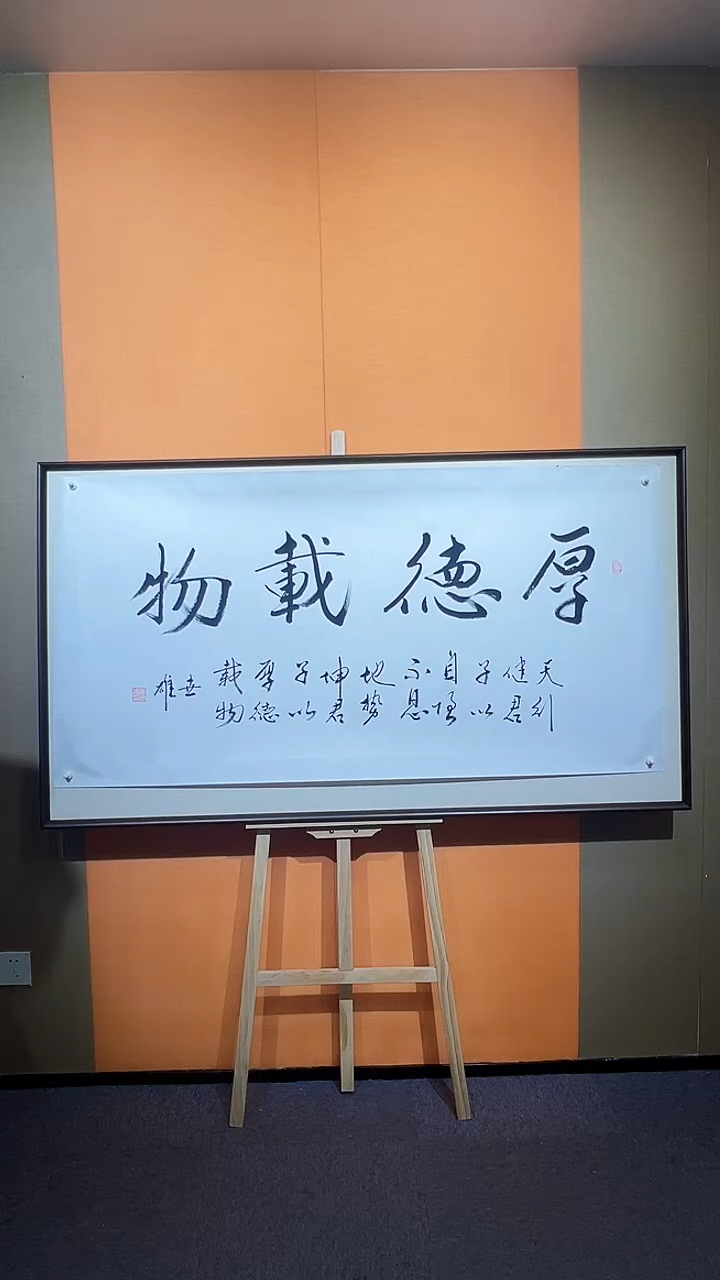 厚德載物
天行
健君
子以
自强
不息
地势
坤君
子以
厚德
载物
世雄